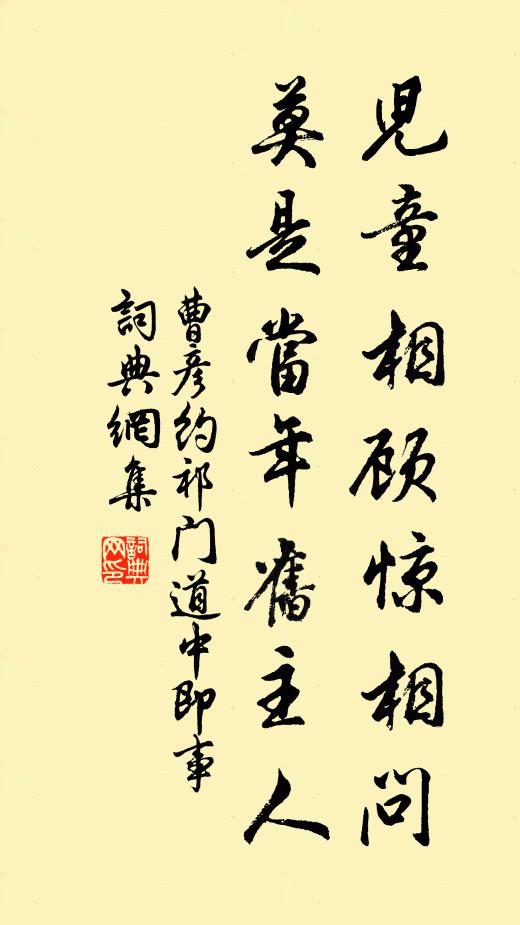 兒童相顾惊相問
莫是當年舊主人
曹彦约祁门道中即事
詞典網集
詞典网印